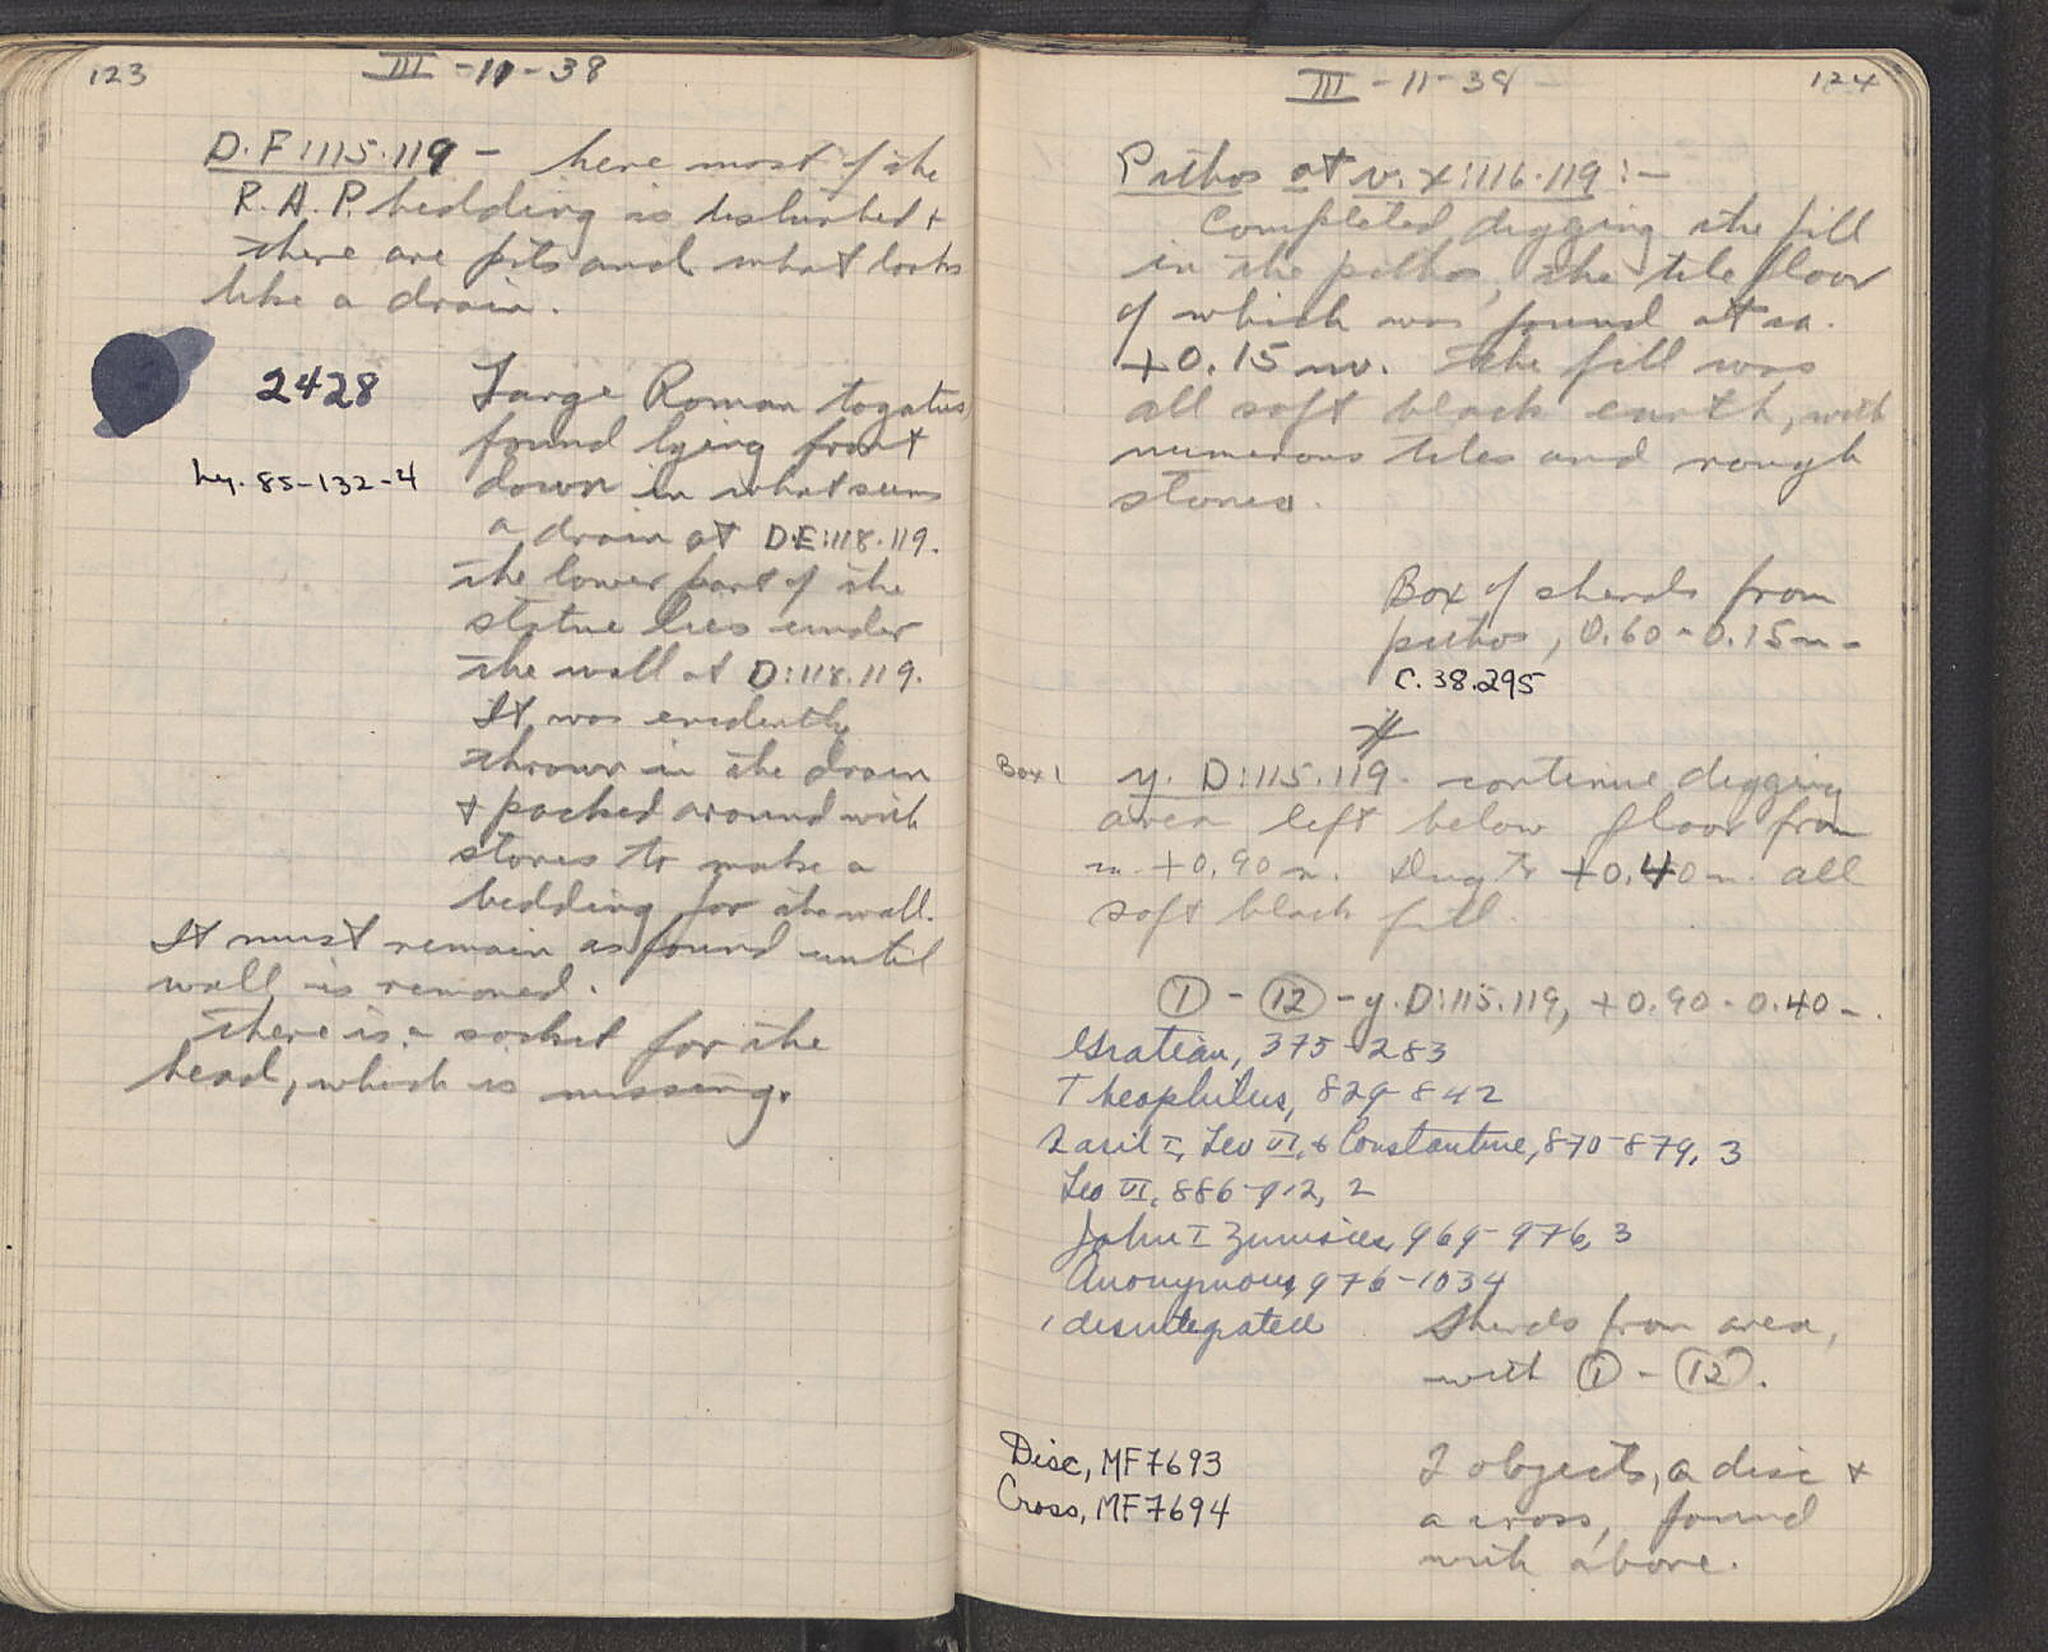 123
III - 11 - 38
D. F:115.119 - here most of the
R.A.P. bedding is disturbed +
there are pits and what looks
like a drain.
2428
Large Roman togatus
found lying front
down in what seems
a drain at D.E:118.119.
neg. 85-132-4
The lower part of the
statue lies under
the wall at D:118.119.
It was evidently
thrown in the drain
+ packed around with
stones to make a
bedding for the wall.
It must remain as found until
wall is removed.
There is a socket for the
head, which is missing.
124
III - 11 - 38
Pithos at v. x:116.119 :-
Completed digging the fill
in the pithos, the tile floor
of which was found at ca.
+0.15 m. The fill was
all soft black earth, with
numerous tiles and rough
stones.
Box of sherds from
pithos, 0.60 - 0.15 m -
C.38.295
Box 1
y. D:115.119. continue digging
area left below floor from
m. +0.90 m. Dug to +0.40 m. all
soft black fill.
① - ⑫ - y. D:115.119, +0.90 - 0.40 -.
Gratian, 375-283
Theophilus, 829-842
Basil I, Leo VI, & Constantine, 870-879, 3
Leo VI, 886-912, 2
John I Zimisces, 969-976, 3
Anonymous, 976-1034
1 disintegrated
Sherds from area,
with ① - ⑫.
Disc, MF7693
Cross, MF7694
2 objects, a disc +
a cross, found
with above.